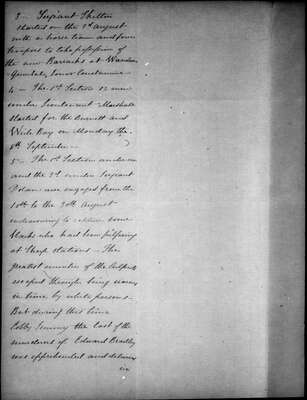 3 — Sergeant Skelton
started on the 1st August
with a horse team and four
troopers to take possession of
the new Barracks at Wandai
Gumbal, Lower Condamine
4 — The 1st Section 12 men
under Lieutenant Marshall
started for the Burnett and
Wide Bay on Monday the
4th September —
5 — The 1st Section under me
and the 2d under Sergeant
Dolan were engaged from the
10th to the 20th August
endeavouring to some
blacks who had been pilfering
at Sheep stations — The
greatest number of the Culprits
escaped through being warned
in time by white persons —
But during this time
Cobby Jemmy the last of the
murderers of Edward Bradley
was apprehended and delivered